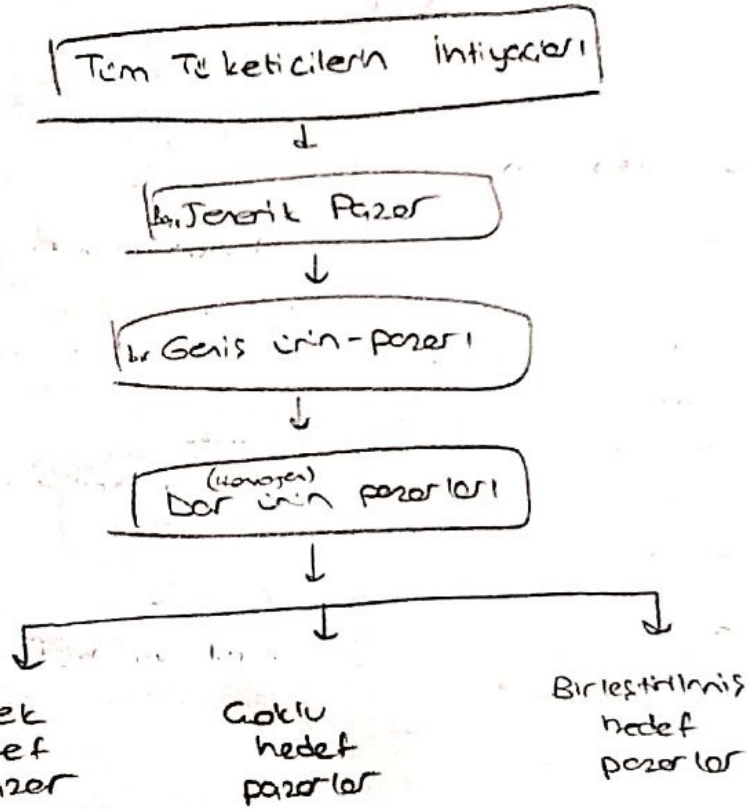 Tüm Tüketicilerin İntiyaçları
bir Jenerik Pazar
bir Geniş ürün-pazarı
(Homojen)
Dar ürün pazarları
ek
ef
azar
Çoklu
hedef
pazarlar
Birleştirilmiş
hedef
pazarlar